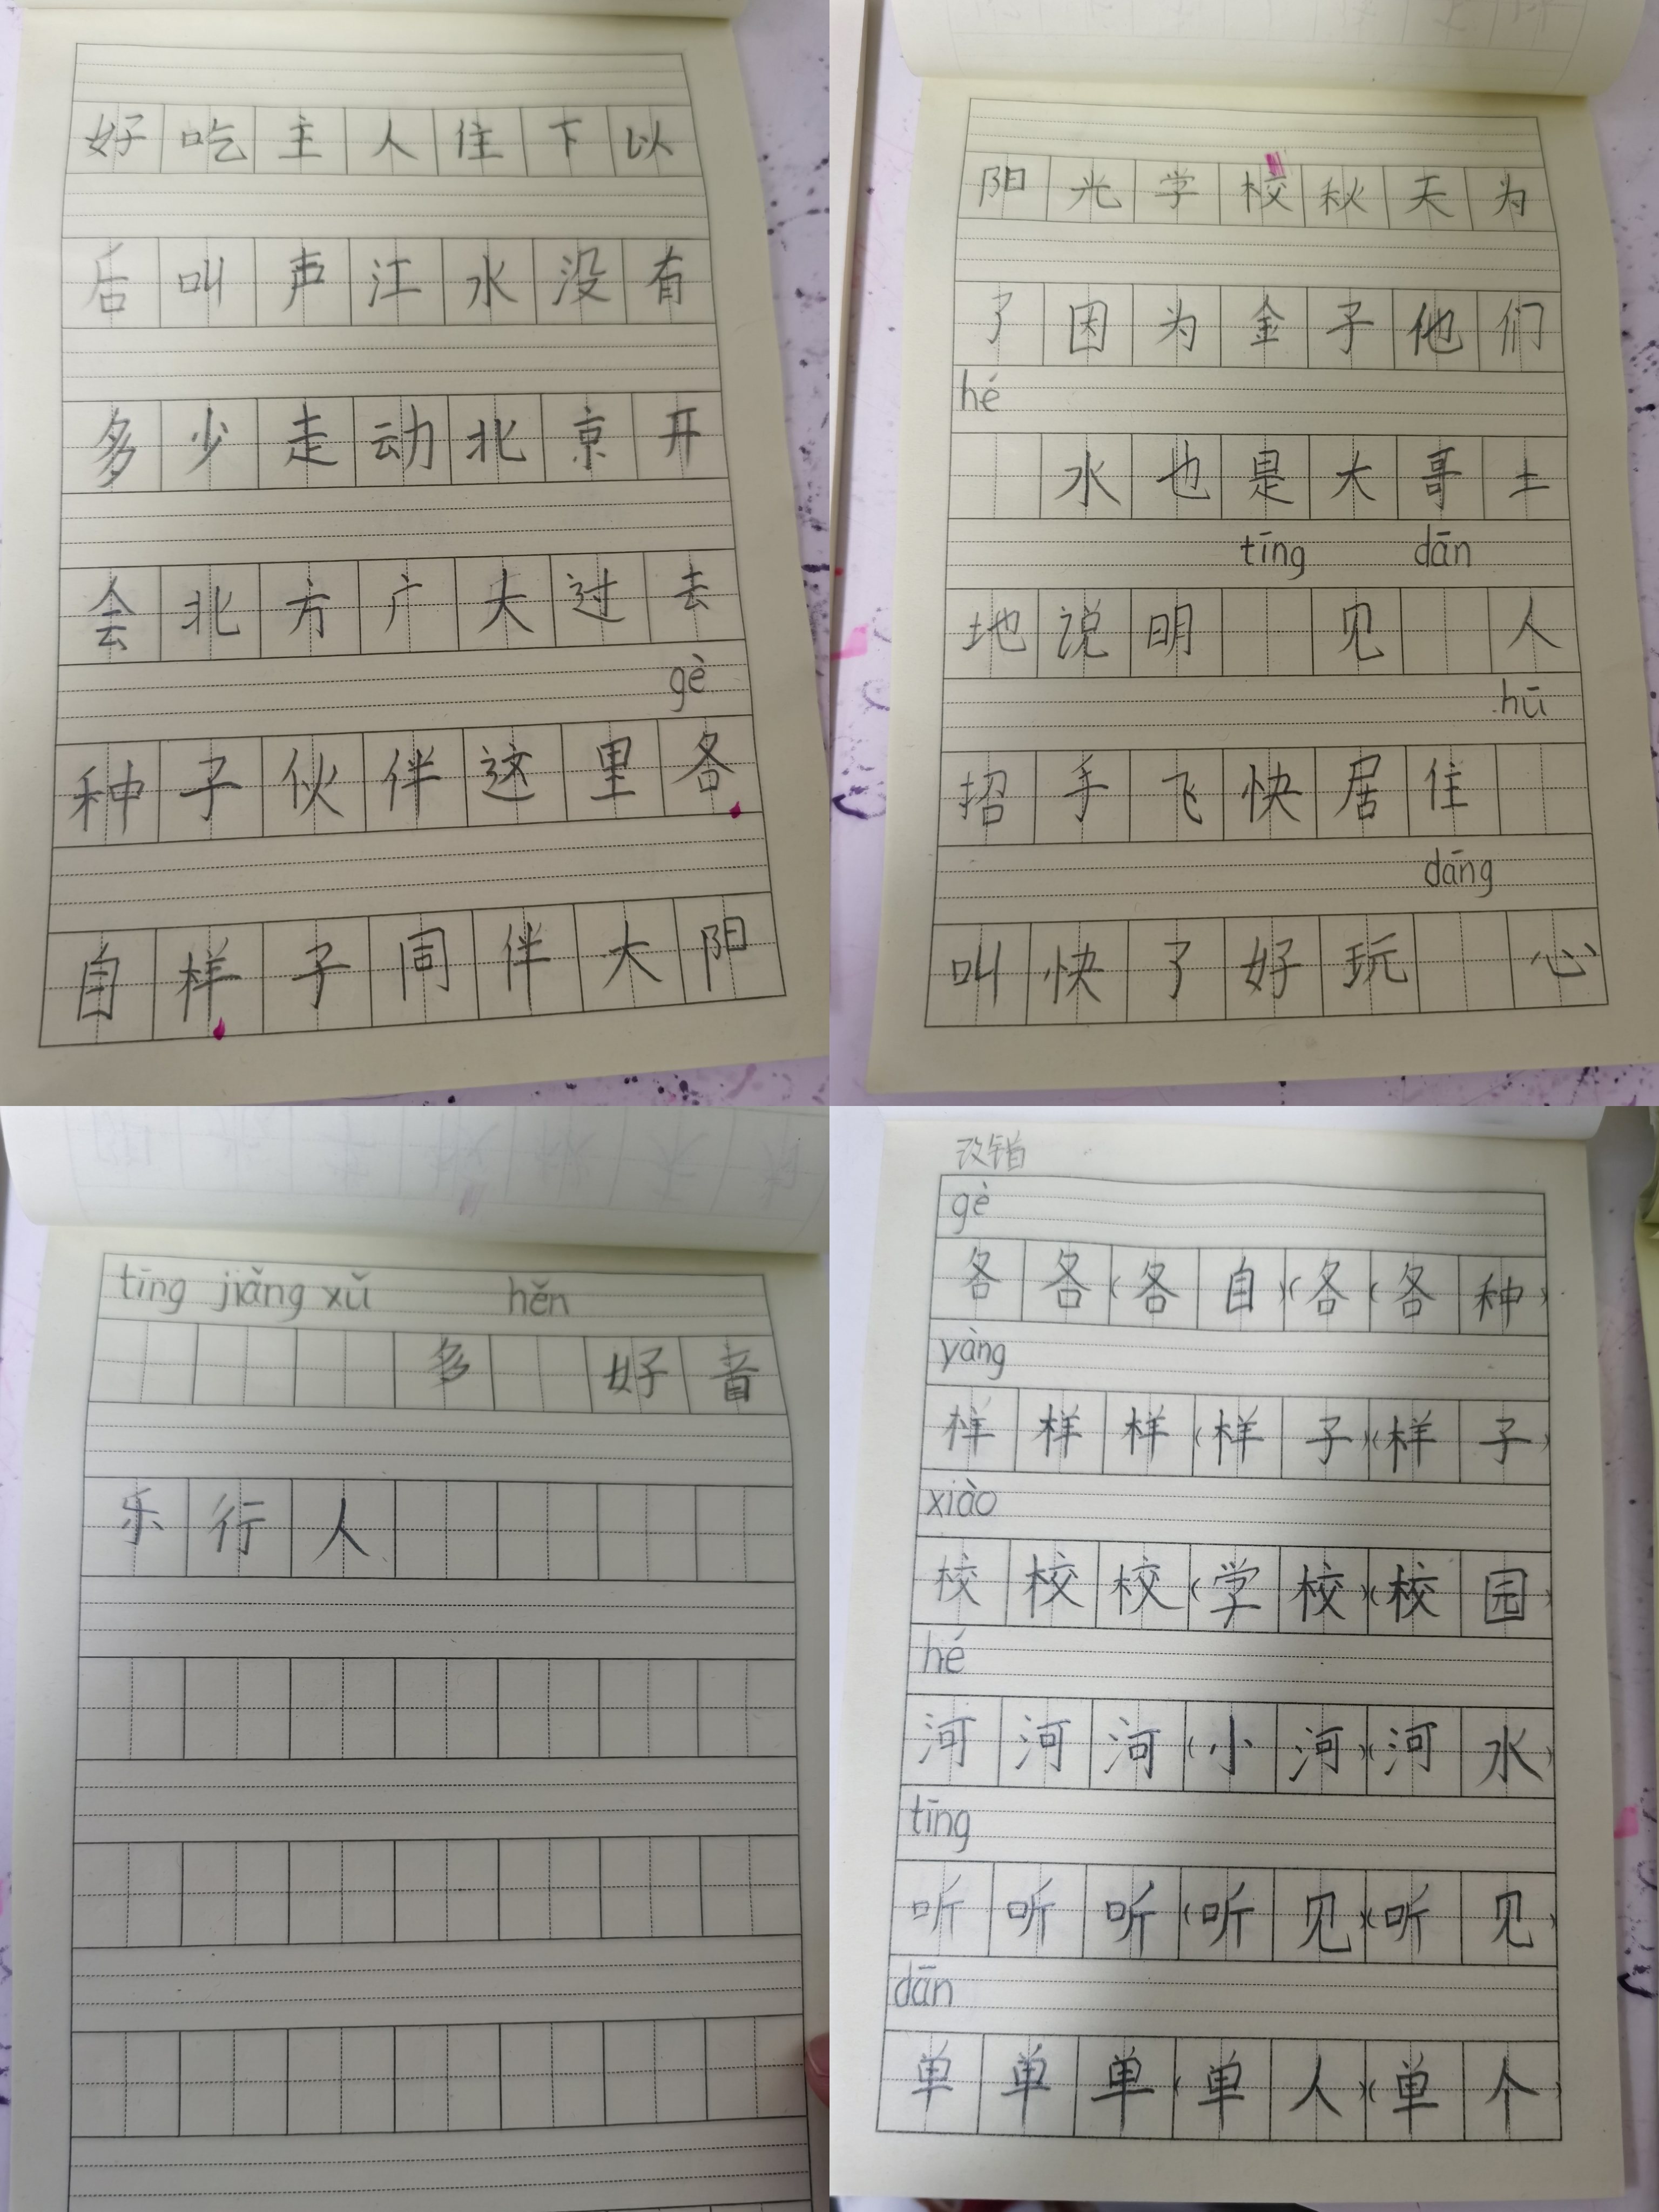 好吃主人住下以
后叫声江水没有
多少走动北京开
会北方广大过去
gè
种子伙伴这里各
自样子同伴大阳
阳光学校秋天为
了因为金子他们
hé
水也是大哥土
tīng dān
地说明 见 人
hū
招手飞快居住
dāng
叫快了好玩 心
tīng jiǎng xǔ hěn
多 好音
乐行人
改错
gè
各各(各自)(各(各种)
yàng
样样样(样子)(样子)
xiào
校校校(学校)(校园)
hé
河河河(小河)(河水)
tīng
听听听(听见)(听见)
dān
单单单(单人)(单个)